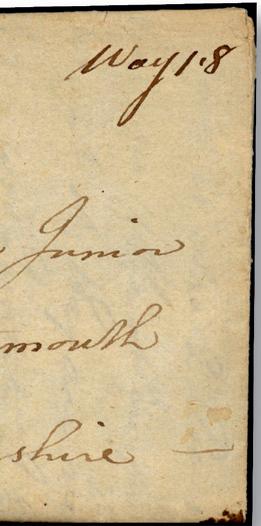 Way 1.8
Junior
mouth
shire —